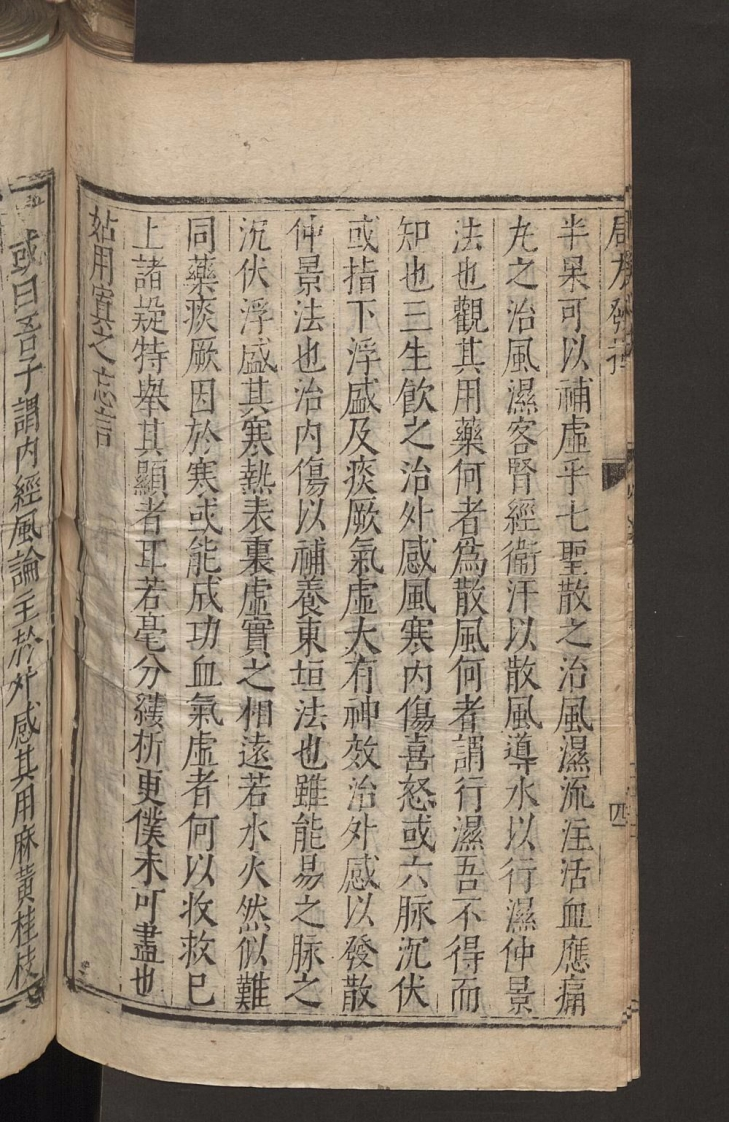 局方發揮
四
半果可以補虛乎七聖散之治風濕流注活血應痛
丸之治風濕客腎經衞汗以散風導水以行濕仲景
法也觀其用藥何者為散風何者謂行濕吾不得而
知也三生飲之治外感風寒内傷喜怒或六脉沉伏
或指下浮盛及痰厥氣虛大有神效治外感以發散
仲景法也治内傷以補養東垣法也雖能易之脉之
沉伏浮盛其寒熱表裏虛實之相遠若水火然似難
同藥痰厥因於寒或能成功血氣虛者何以收救已
上諸疑特舉其顯者耳若毫分縷析更僕未可盡也
姑用寘之忘言
或曰吾子謂内經風論主於外感其用麻黃桂枝